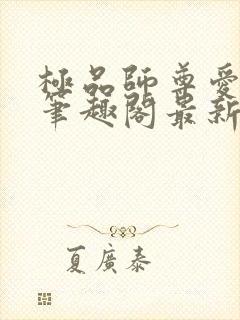 極品師尊愛
筆趣閣最新
夏廣泰